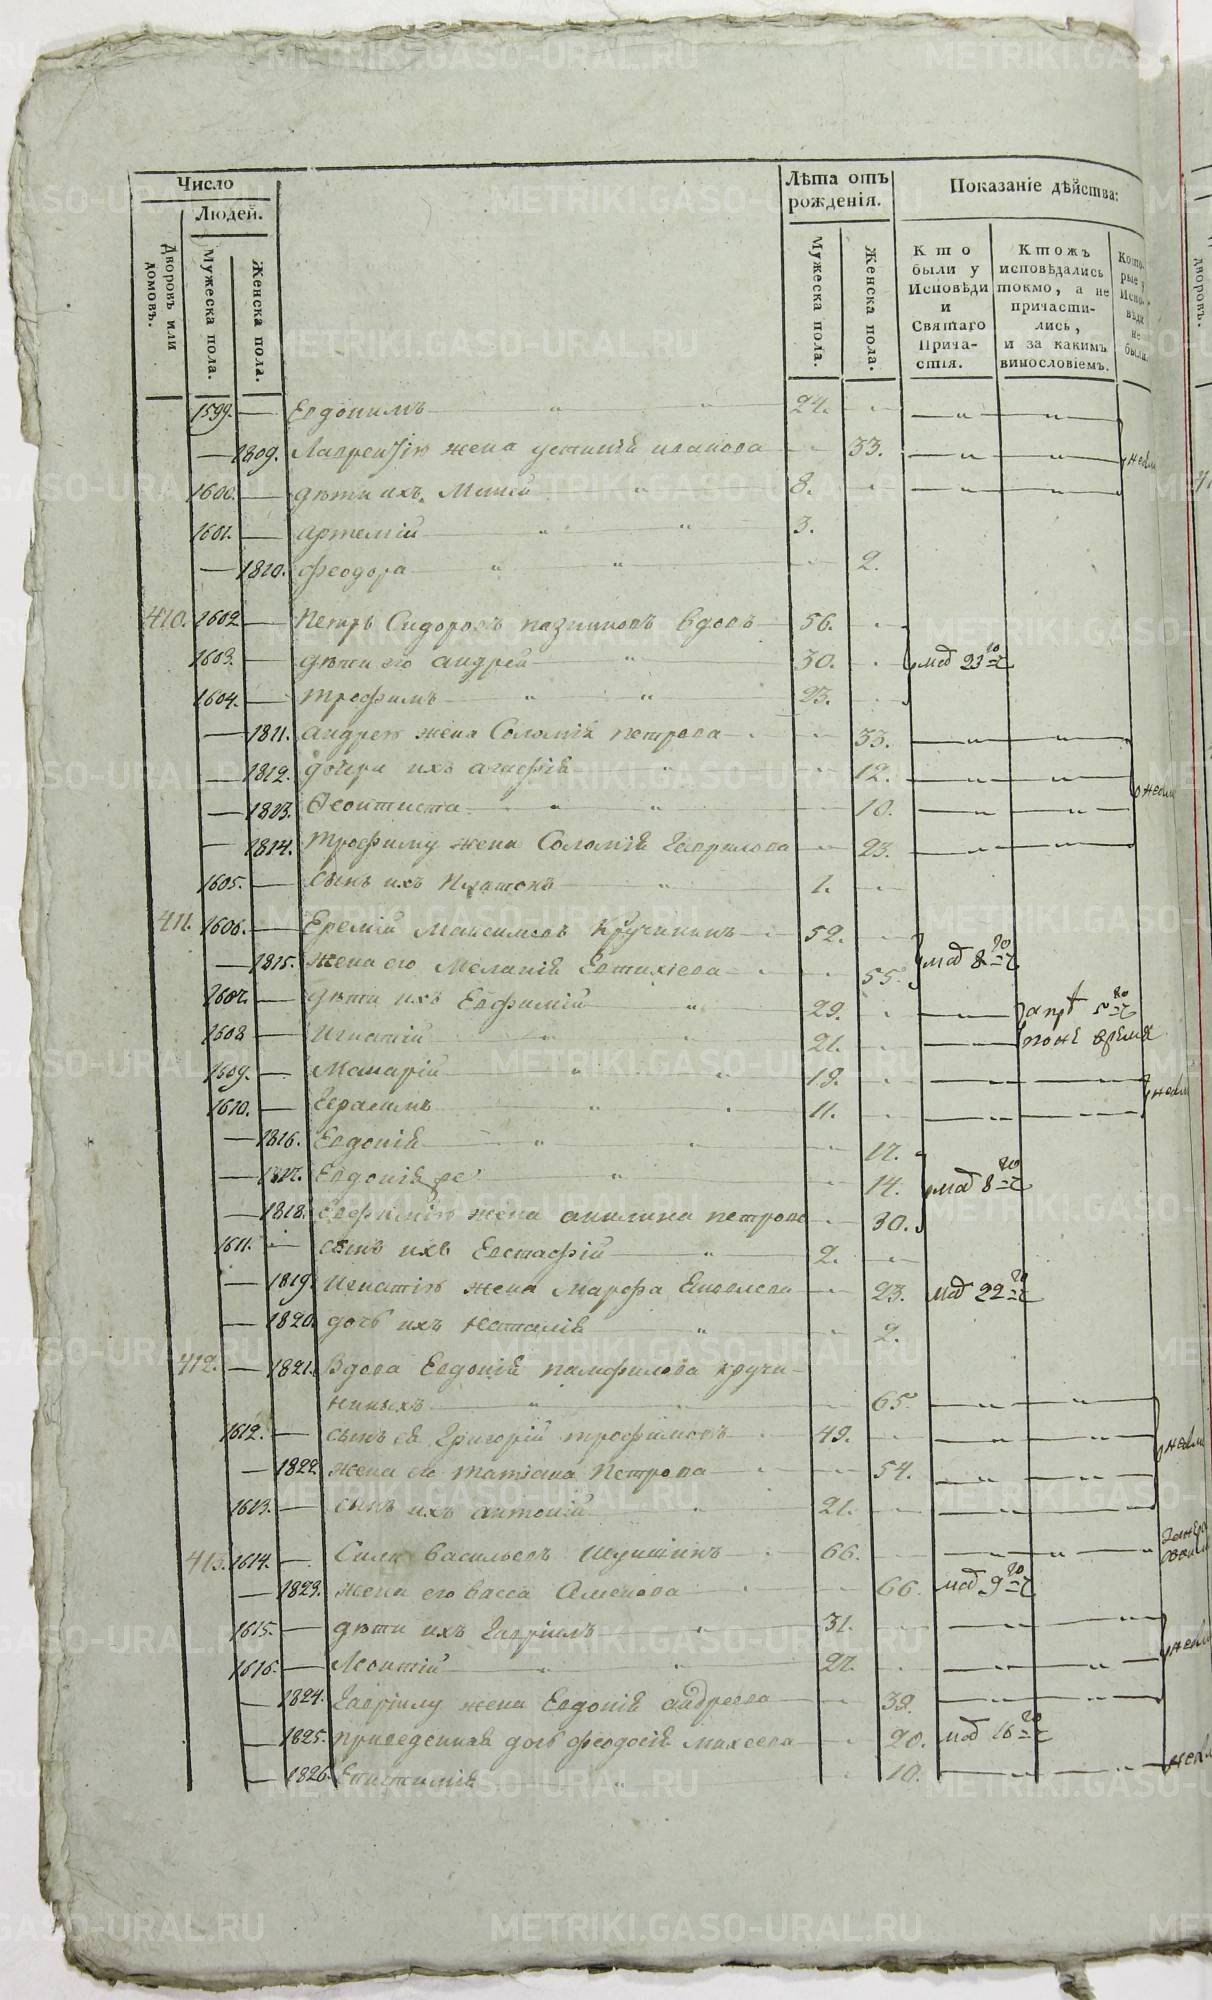 Число
Людей.
Дворовъ или домовъ.
Мужеска пола.
Женска пола.
Лѣта отъ рожденія.
Мужеска пола.
Женска пола.
Показаніе дѣйства:
Кто были у Исповѣди и Святаго Причастія.
Ктожъ исповѣдались токмо, а не причастились, и за какимъ винословіемъ.
Которые у Исповѣди не были.
дворовъ.
1599. Евдокимъ 24.
1809. Лаврентію жена устинія иванова 33.
1600. дѣти ихъ 8.
1601. артемій 3.
1810. феодора 2.
410. 1602 Петръ Сидоровъ вдовъ 56.
1603. дѣти его андрей 30. 23
1604. трофимъ 23.
1811. андрею жена Соломія петрова 33.
1812. дочери ихъ агафія 12.
1813. Ѳеоктиста 10.
1814. трофиму жена Соломія Гаврилова 23.
1605. сынъ ихъ Платонъ 1.
411. 1606. Еремій Максимовъ Кручининъ 52.
1815. жена его Меланія Евтихіева 55. 8
1607. дѣти ихъ Евфимій 29.
1608 Игнатій 21. время
1609. Макарій 19.
1610. Герасимъ 11.
1816. Евдокія 17.
1817. Евдокія 14. 8
1818. Евфимію жена акилина петрова 30.
1611. сынъ ихъ Евстафій 2.
1819. Игнатію жена Марфа 23. 22
1820. дочь ихъ Наталія 2.
412. 1821. Вдова Евдокія памфилова кручи-
ниныхъ 65.
1612. сынъ ея Григорій трофимовъ 49.
1822. жена его татіана Петрова 54.
1613. сынъ ихъ антоній 21.
413. 1614. Сила васильевъ 66.
1823. жена его васса Семенова 66. 9
1615. дѣти ихъ Гавріилъ 31.
1616. Леонтій 27.
1824. Гавріилу жена Евдокія андреева 39.
1825. приведенная дочь феодосія михеева 20. 16
1826. Епистимія 10.
METRIKI.GASO-URAL.RU